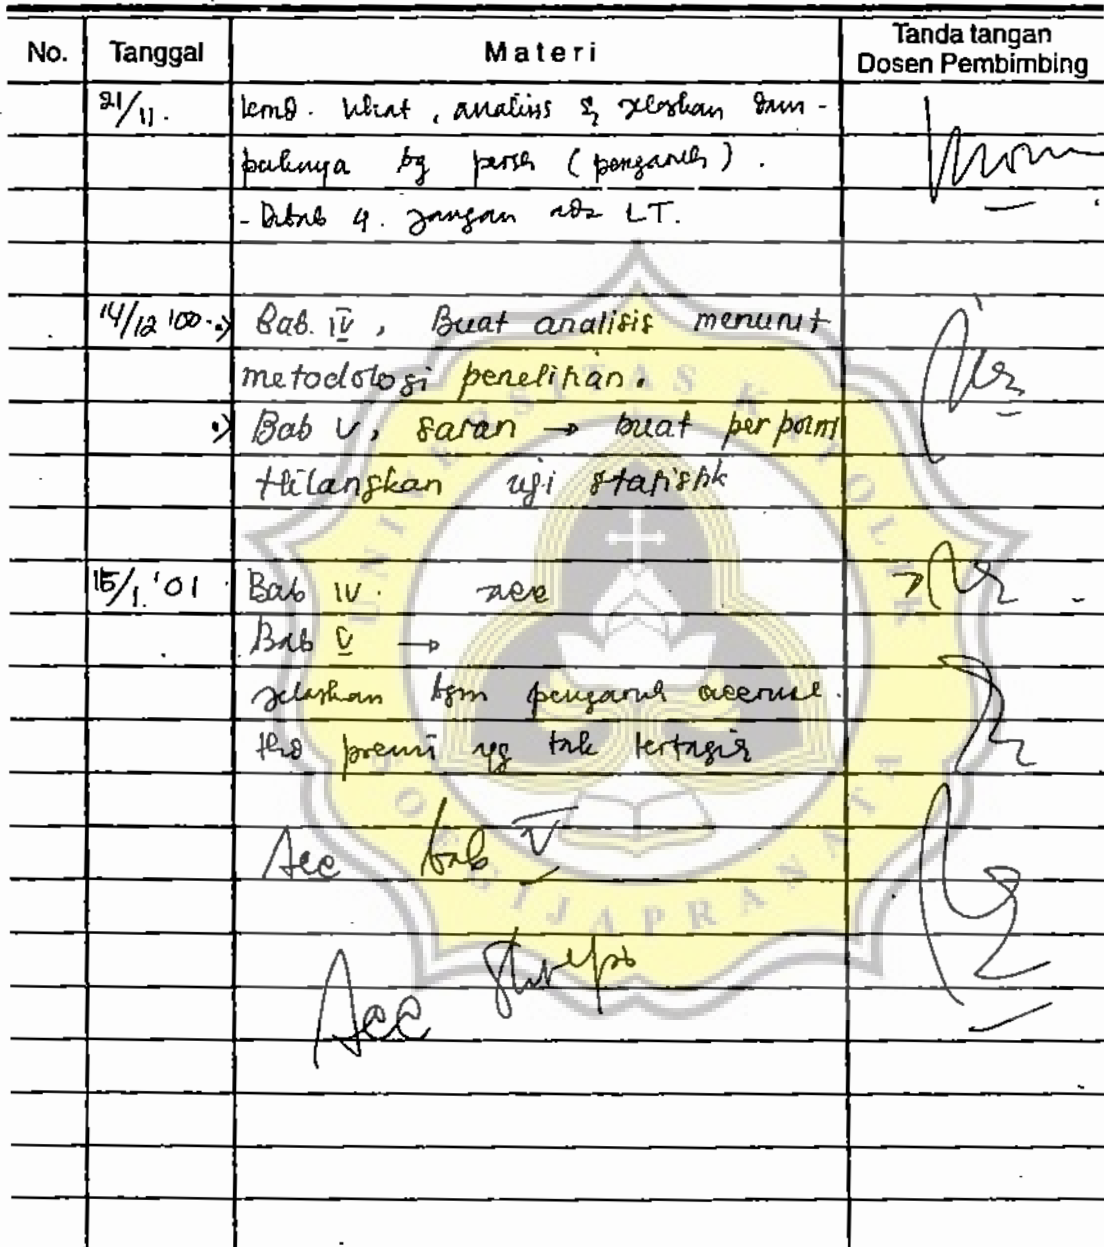 No. Tanggal Materi Tanda tangan
Dosen Pembimbing
21/11. kmd. lihat, analisis & jelaskan dam-
paknya bg persh (pengaruh).
- Dibab 4. jangan ada LT.
14/12 '00 •) Bab. IV, Buat analisis menurut
metodologi penelitian.
•) Bab V, saran → buat per point
Hilangkan uji statistik
15/1. '01 Bab IV. acc
Bab V →
jelaskan bgm pengaruh accrual
thd premi yg tak tertagih
Acc bab V
Acc
UNIVERSITAS KATOLIK
SOEGIJAPRANATA